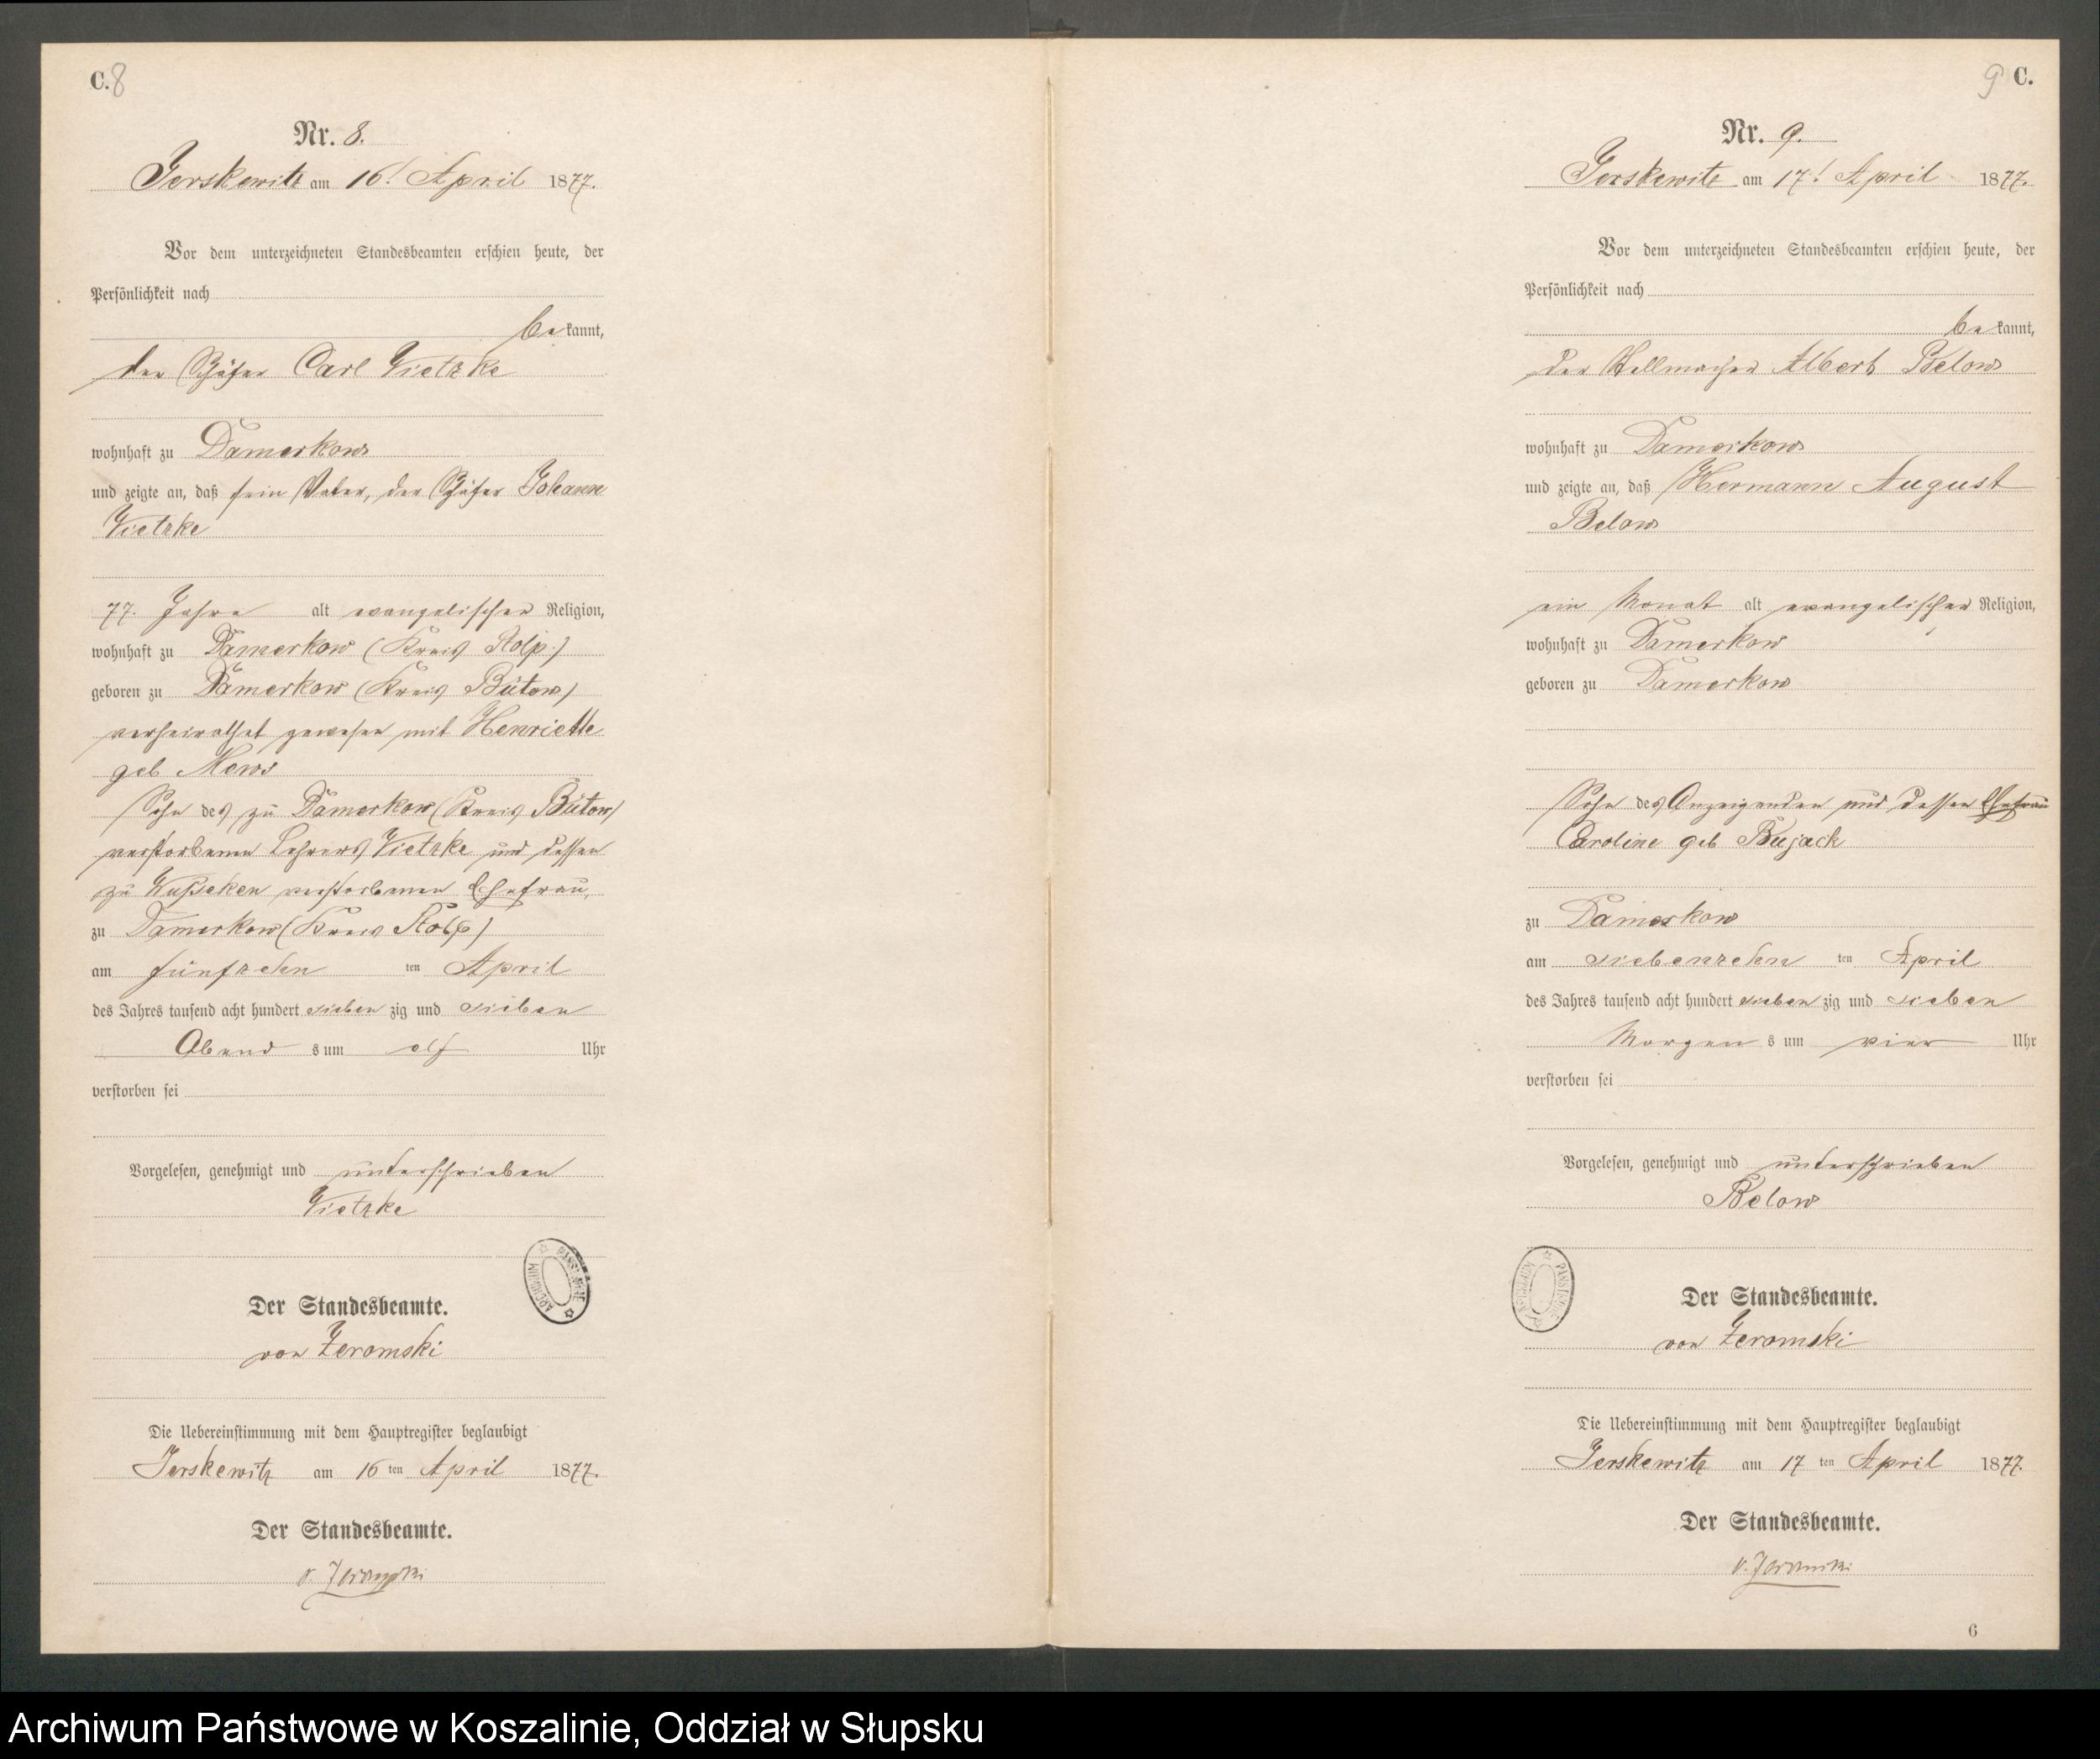 C. 8
Nr. 8.
Jerskewitz am 16t April 1877.
Vor dem unterzeichneten Standesbeamten erschien heute, der
Persönlichkeit nach
bekannt,
der Schäfer Carl Vietzke
wohnhaft zu Damerkow
und zeigte an, daß sein Vater, der Schäfer Johann
Vietzke
77. Jahre alt evangelischer Religion,
wohnhaft zu Damerkow (Kreis Stolp)
geboren zu Damerkow (Kreis Bütow)
verheirathet gewesen mit Henriette
geb Mews
Sohn des zu Damerkow (Kreis Bütow)
verstorbenen Lehrers Vietzke und dessen
zu Wusseken verstorbenen Ehefrau,
zu Damerkow (Kreis Stolp)
am fünfzehn ten April
des Jahres tausend acht hundert sieben zig und sieben
Abend s um elf Uhr
verstorben sei
Vorgelesen, genehmigt und unterschrieben
Vietzke
ARCHIWUM PAŃSTWOWE
Der Standesbeamte.
von Zeromski
Die Uebereinstimmung mit dem Hauptregister beglaubigt
Jerskewitz am 16 ten April 1877.
Der Standesbeamte.
v. Zeromski
9 C.
Nr. 9.
Jerskewitz am 17t April 1877.
Vor dem unterzeichneten Standesbeamten erschien heute, der
Persönlichkeit nach
bekannt,
der Stellmacher Albert Below
wohnhaft zu Damerkow
und zeigte an, daß Hermann August
Below
ein Monat alt evangelischer Religion,
wohnhaft zu Damerkow
geboren zu Damerkow
Sohn des Anzeigenden und dessen Ehefrau
Caroline geb Bujack
zu Damerkow
am siebenzehn ten April
des Jahres tausend acht hundert sieben zig und sieben
Morgen s um vier Uhr
verstorben sei
Vorgelesen, genehmigt und unterschrieben
Below
ARCHIWUM PAŃSTWOWE
Der Standesbeamte.
von Zeromski
Die Uebereinstimmung mit dem Hauptregister beglaubigt
Jerskewitz am 17 ten April 1877.
Der Standesbeamte.
v. Zeromski
6
Archiwum Państwowe w Koszalinie, Oddział w Słupsku